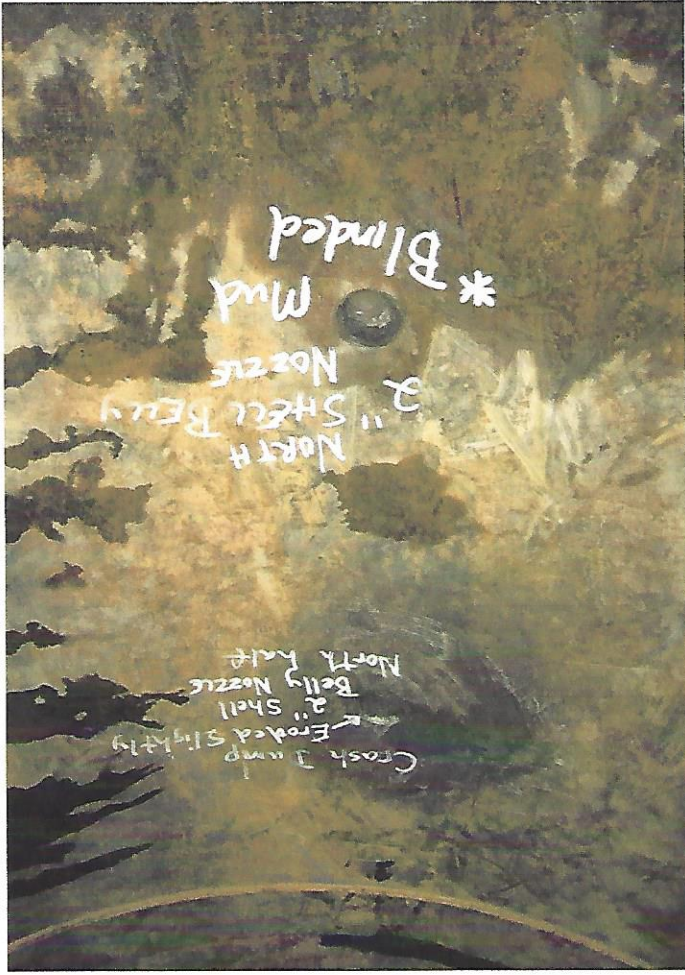 Crash Dump
← Eroded Slightly
2" Shell
Belly Nozzle
North half
NORTH
2" SHELL BELLY
NOZZLE
Mud
* Blinded